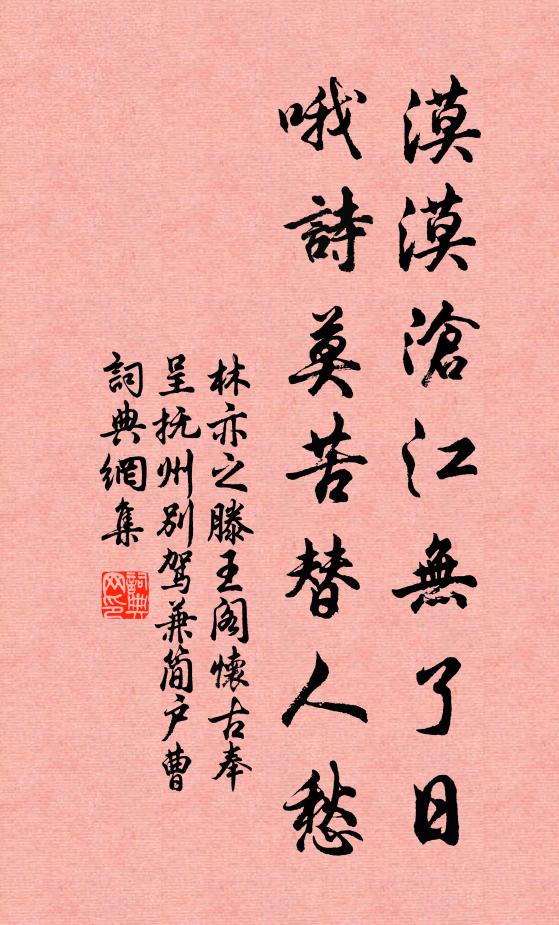 漠漠滄江無了日
哦詩莫苦替人愁
林亦之滕王阁懷古奉
呈抚州别驾兼简户曹
詞典網集
詞典
网印